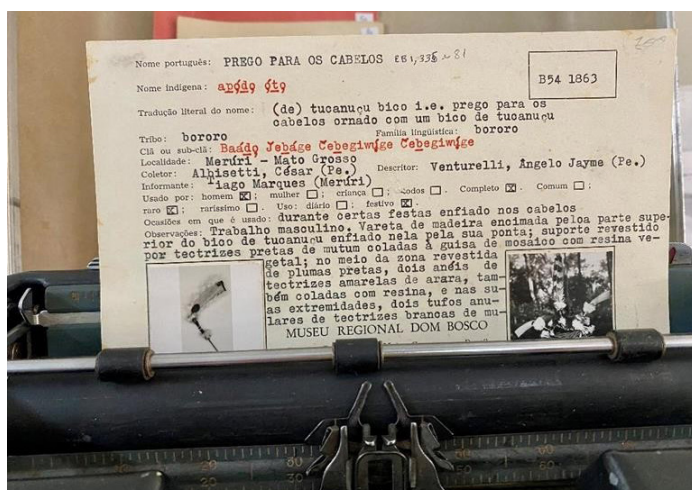 Nome português: PREGO PARA OS CABELOS
B54 1863
Nome indígena: apódo óto
Tradução literal do nome: (de) tucanuçu bico i.e. prego para os
cabelos ornado com um bico de tucanuçu
Tribo: bororo Família lingüística: bororo
Clã ou sub-clã: Baádo Jebáge Cebegiwúge Cebegiwúge
Localidade: Merúri - Mato Grosso
Coletor: Albisetti, César (Pe.) Descritor: Venturelli, Ângelo Jayme (Pe.)
Informante: Tiago Marques (Merúri)
Usado por: homem ☒; mulher ☐; criança ☐; todos ☐. Completo ☒. Comum ☐;
raro ☒; raríssimo ☐. Uso: diário ☐; festivo ☒.
Ocasiões em que é usado: durante certas festas enfiado nos cabelos
Observações: Trabalho masculino. Vareta de madeira encimada peloa parte supe-
rior do bico de tucanuçu enfiado nela pela sua ponta; suporte revestido
por tectrizes pretas de mutum coladas à guisa de mosaico com resina ve-
getal; no meio da zona revestida
de plumas pretas, dois anéis de
tectrizes amarelas de arara, tam-
bém coladas com resina, e nas su-
as extremidades, dois tufos anu-
lares de tectrizes brancas de mu-
MUSEU REGIONAL DOM BOSCO